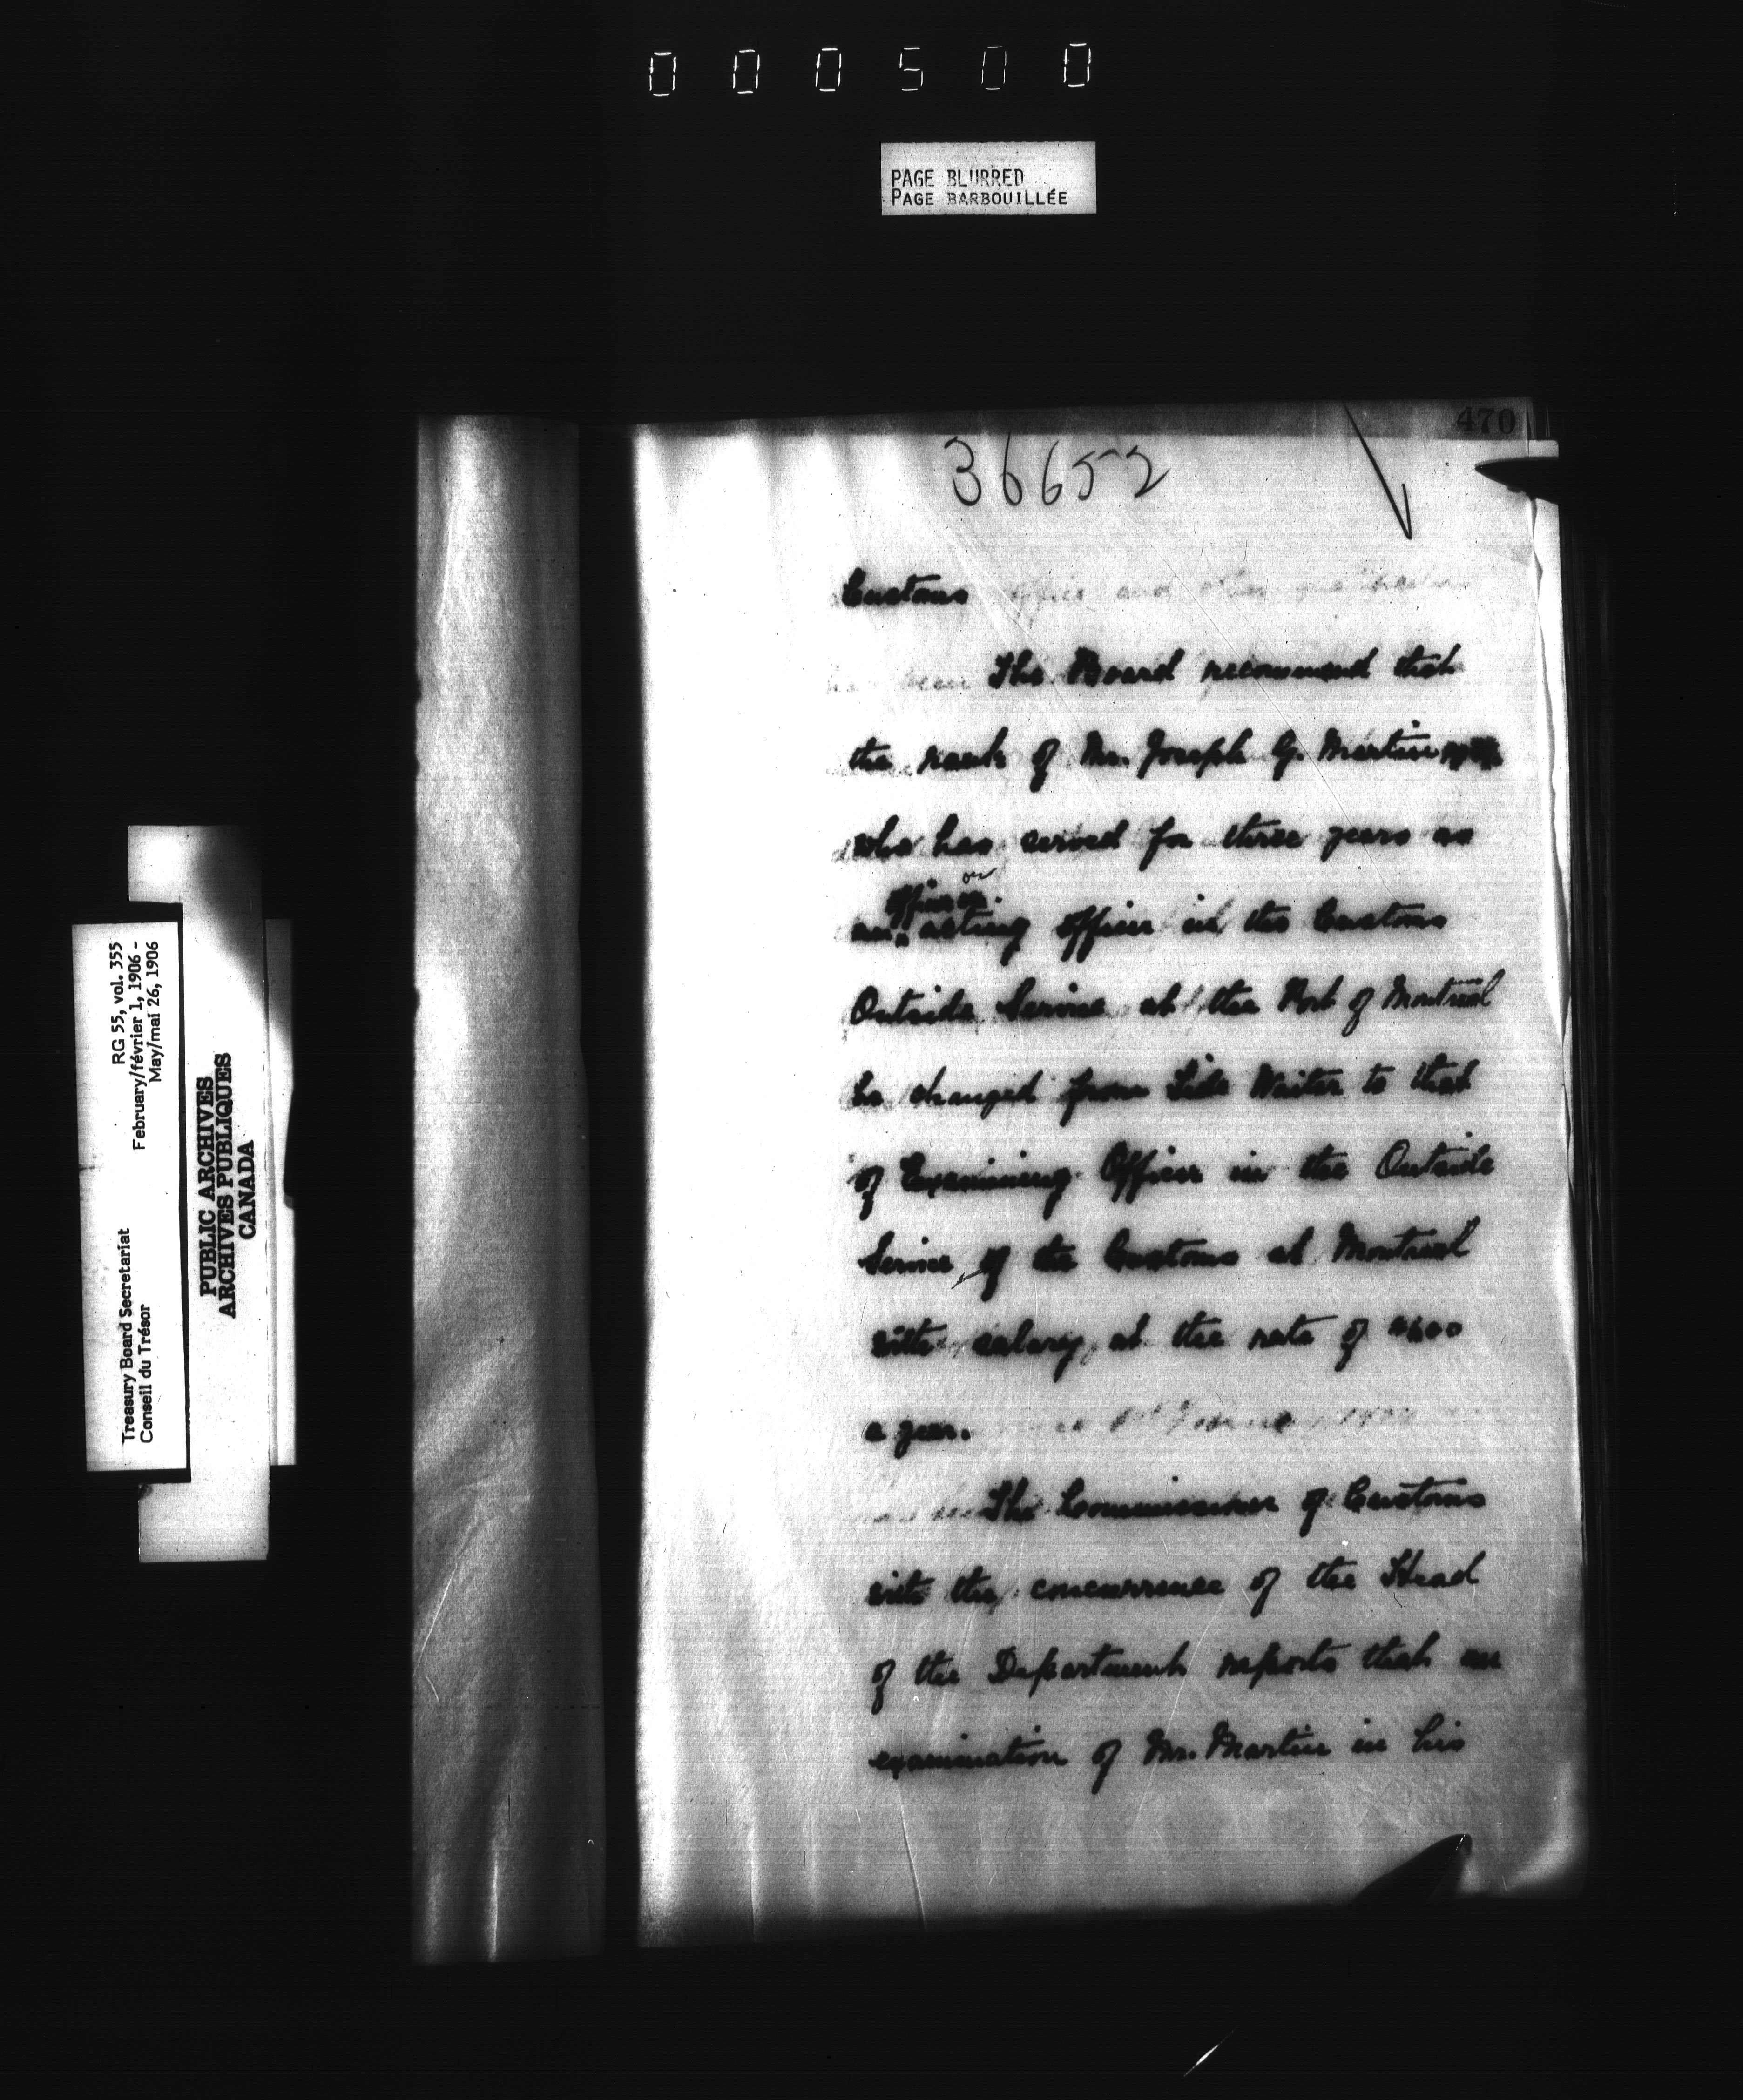 000500
PAGE BLURRED
PAGE BARBOUILLÉE
470
36652
Customs
The Board recommend that
the rank of Mr. Joseph G. Martin
who has served for three years as
officer or
an acting officer in the Customs
Outside Service at the Port of Montreal
be changed from Tide Waiter to that
of Examining Officer in the Outside
Service of the Customs at Montreal
with salary at the rate of $600
a year.
The Commissioner of Customs
with the concurrence of the Head
of the Department reports that an
examination of Mr. Martin in his
Treasury Board Secretariat
Conseil du Trésor
RG 55, vol. 355
February/février 1, 1906 -
May/mai 26, 1906
PUBLIC ARCHIVES
ARCHIVES PUBLIQUES
CANADA